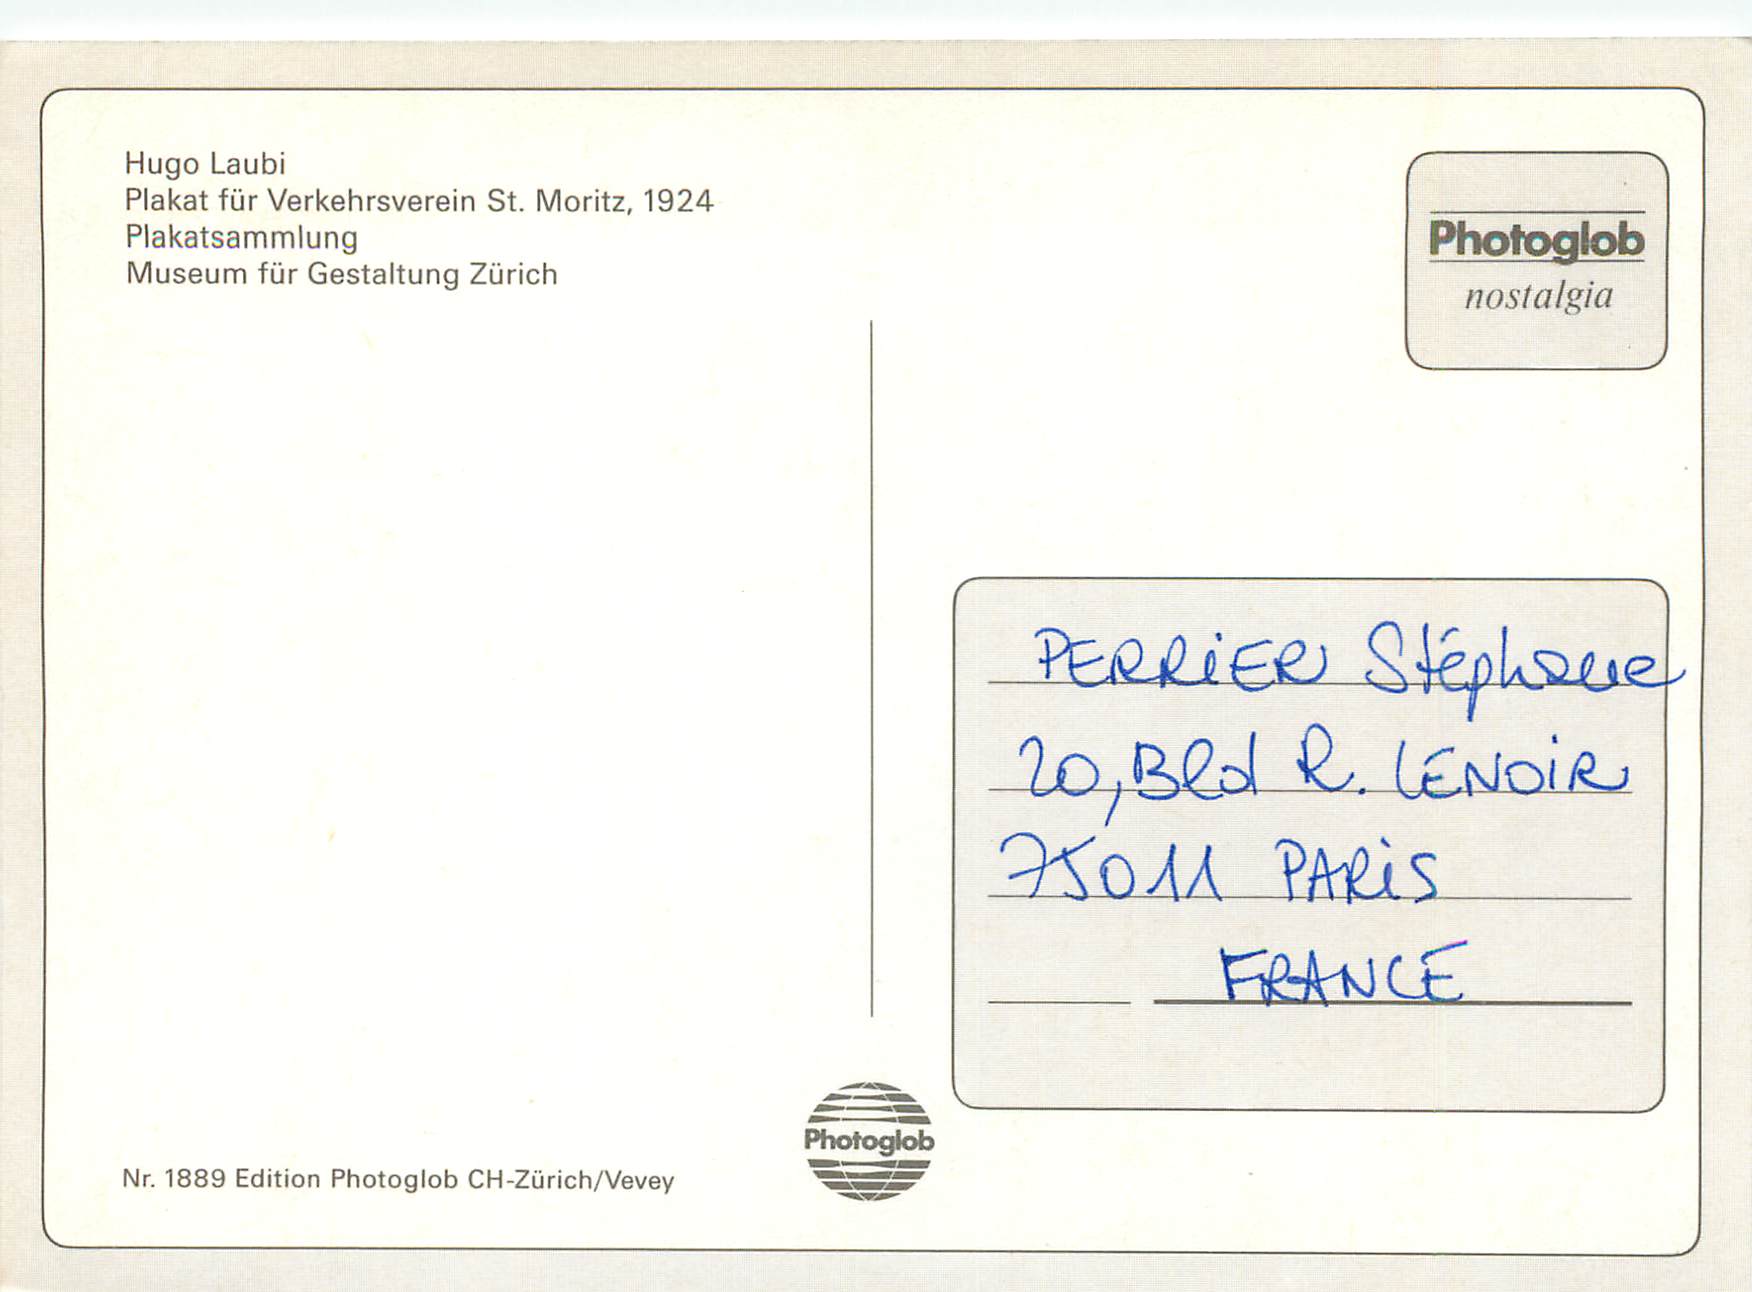 Hugo Laubi
Plakat für Verkehrsverein St. Moritz, 1924
Plakatsammlung
Museum für Gestaltung Zürich
Photoglob
nostalgia
PERRIER Stéphane
20, Bld R. LENOIR
75011 PARIS
FRANCE
Photoglob
Nr. 1889 Edition Photoglob CH-Zürich/Vevey